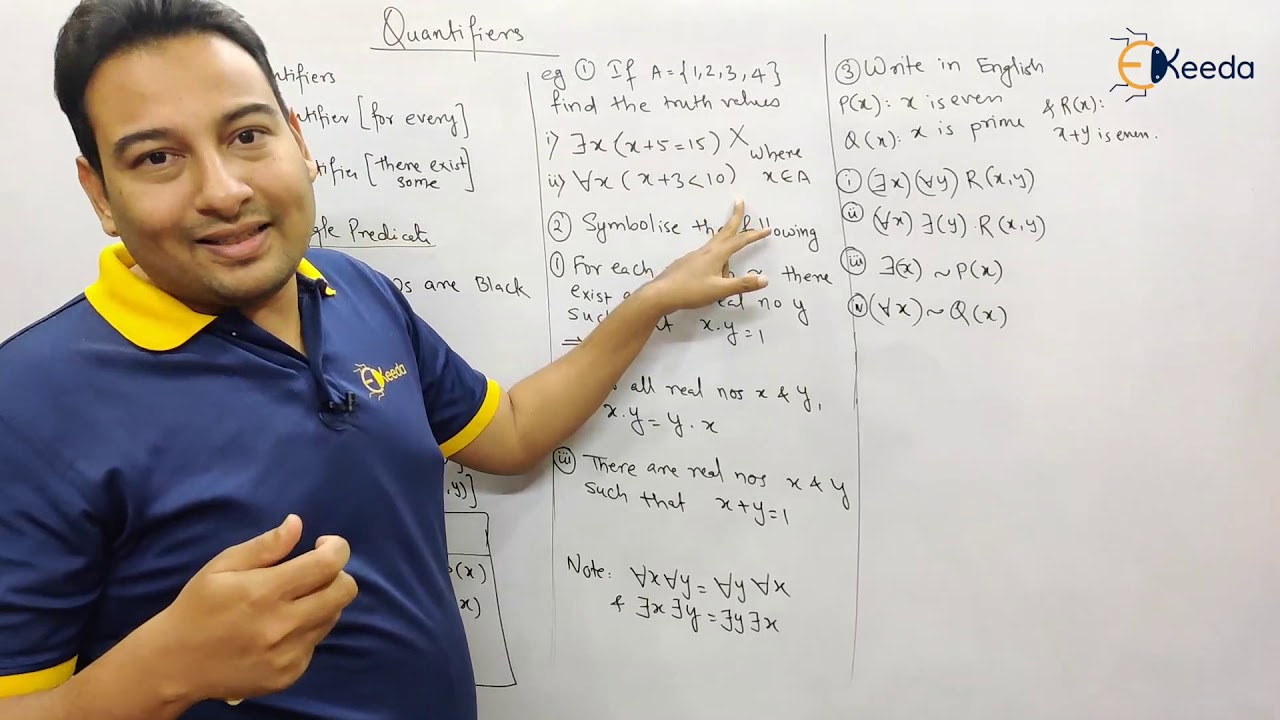 Quantifiers
ntifiers
ntifier [for every]
tifier [there exist
some
gle Predicate
Os are Black
,y)]
(x)
x)
eg ① If A = {1, 2, 3, 4}
find the truth values
i) ∃x (x+5=15) X
where
ii) ∀x (x+3<10) x∈A
② Symbolise the following
① For each there
exist real no y
such x.y=1
⇒
all real nos x & y,
x.y = y.x
iii There are real nos x & y
such that x+y=1
Note: ∀x∀y = ∀y ∀x
& ∃x ∃y = ∃y ∃x
③ Write in English
P(x): x is even & R(x):
Q(x): x is prime x+y is even.
i (∃x)(∀y) R(x,y)
ii (∀x) ∃(y) . R(x,y)
iii ∃(x) ~P(x)
iv (∀x) ~ Q(x)
EKeeda
EKeeda